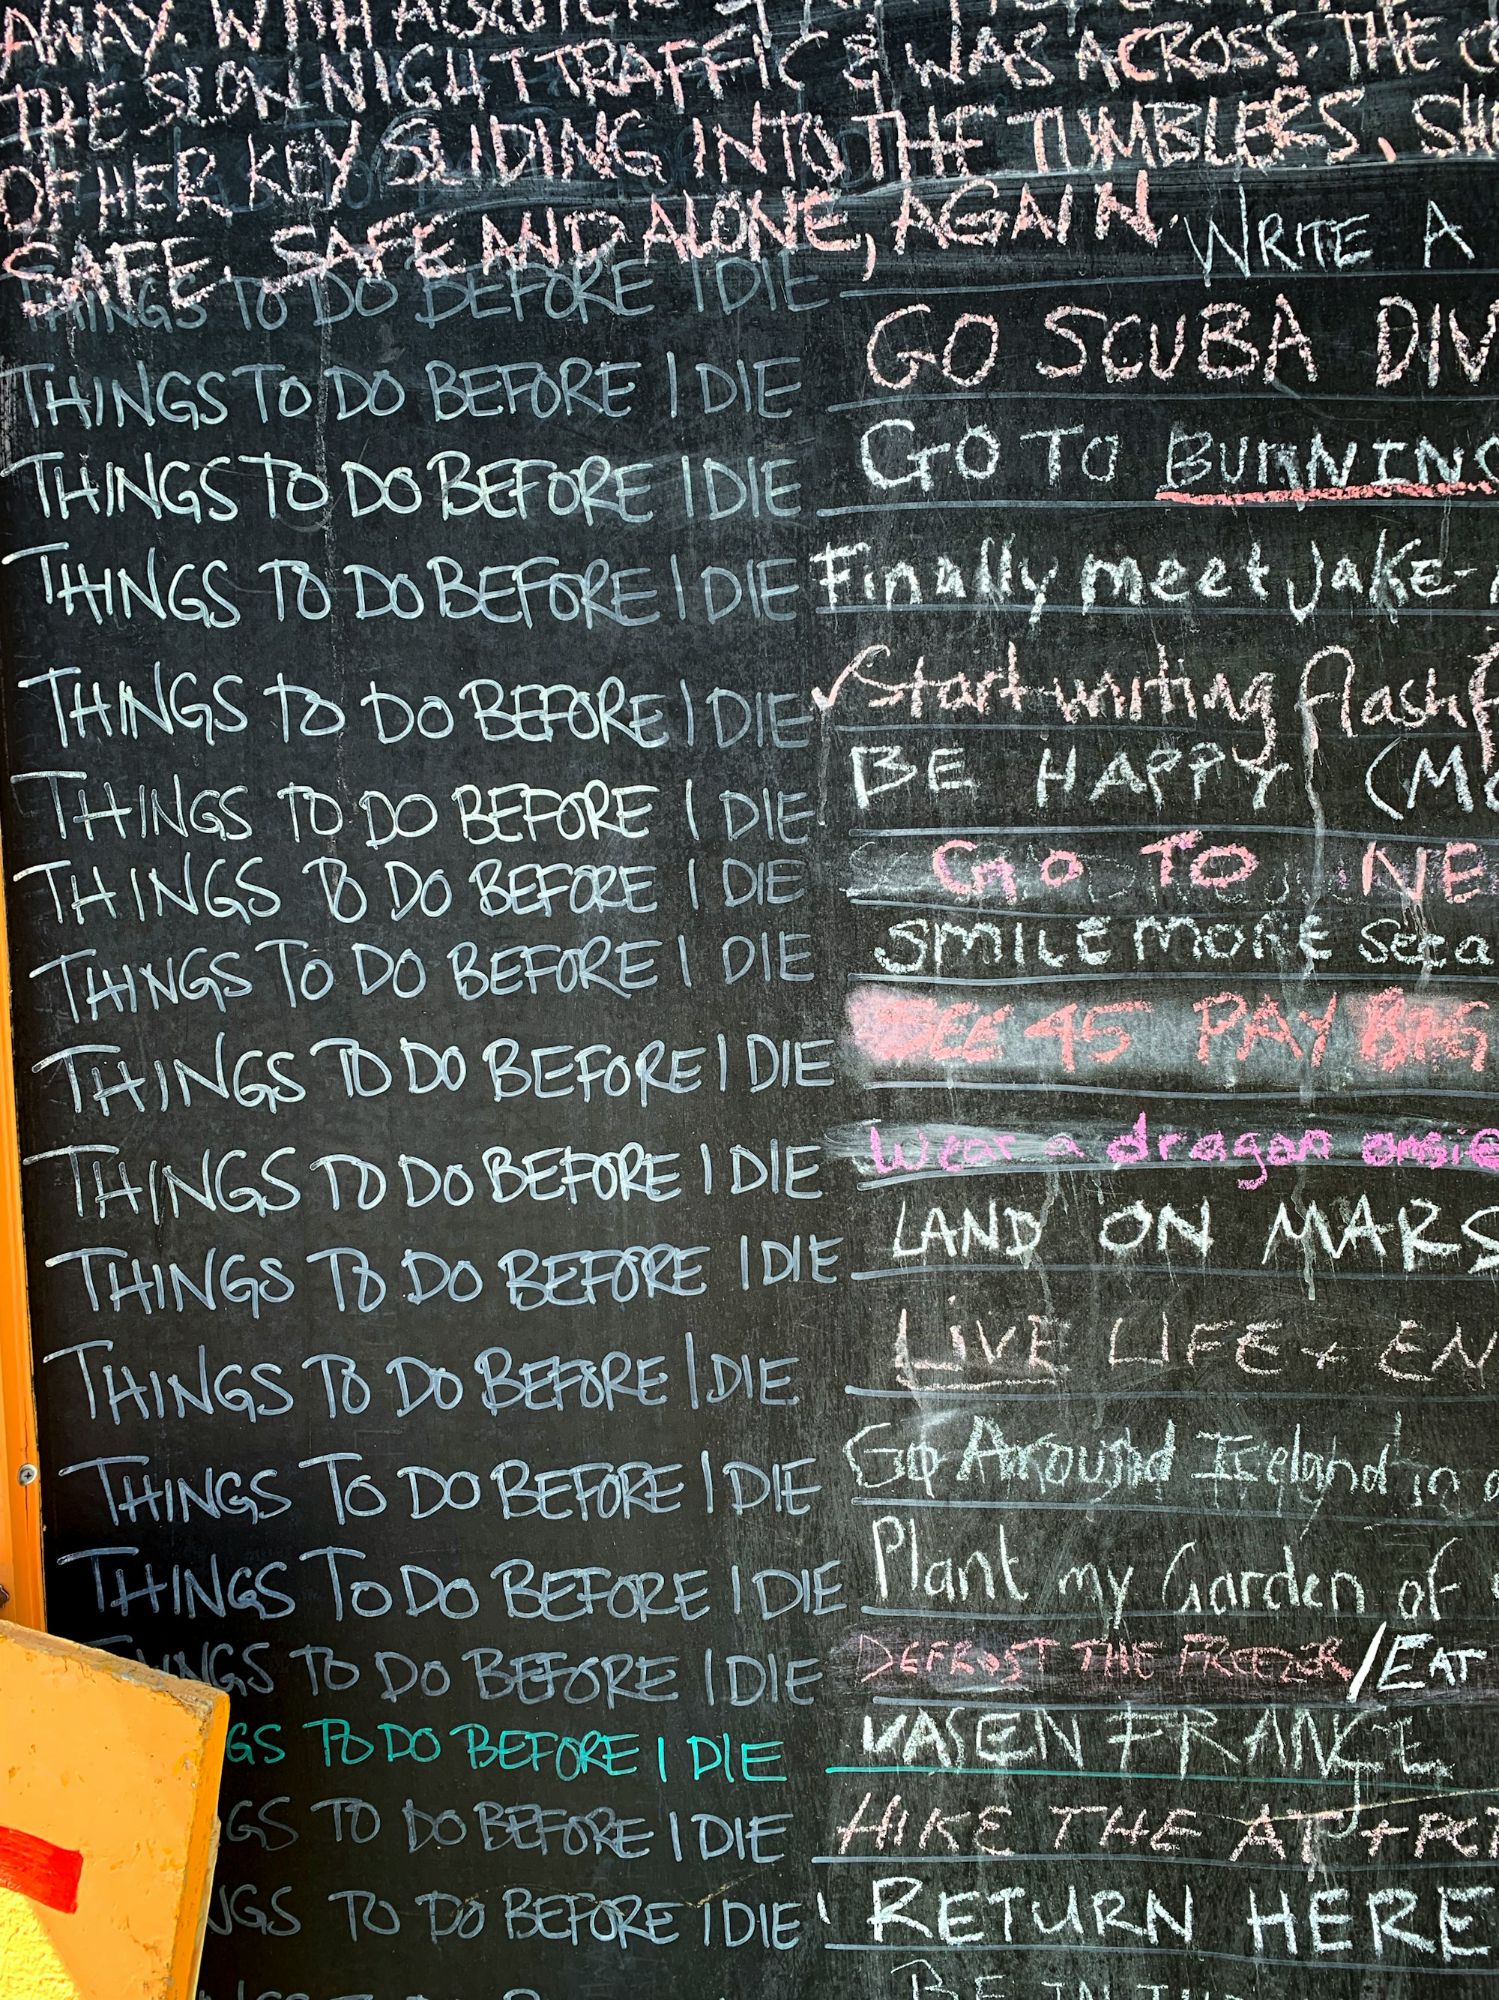 AWAY. WITH
THE SLOW NIGHT TRAFFIC & WAS ACROSS. THE
OF HER KEY SLIDING INTO THE TUMBLERS. SH
SAFE. SAFE AND ALONE, AGAIN.
THINGS TO DO BEFORE I DIE WRITE A
THINGS TO DO BEFORE I DIE GO SCUBA DIV
THINGS TO DO BEFORE I DIE GO TO BURNING
THINGS TO DO BEFORE I DIE Finally meet Jake-
THINGS TO DO BEFORE I DIE ✓Start writing flash f
THINGS TO DO BEFORE I DIE BE HAPPY (MO
THINGS TO DO BEFORE I DIE GO TO NE
THINGS TO DO BEFORE I DIE SMILE MORE
THINGS TO DO BEFORE I DIE SEE 45 PAY
THINGS TO DO BEFORE I DIE Wear a dragon onsie
THINGS TO DO BEFORE I DIE LAND ON MARS
THINGS TO DO BEFORE I DIE LIVE LIFE + EN
THINGS TO DO BEFORE I DIE Go Around Iceland in a
THINGS TO DO BEFORE I DIE Plant my Garden of
THINGS TO DO BEFORE I DIE DEFROST THE FREEZER/EAT
GS TO DO BEFORE I DIE VASEN FRANCE
GS TO DO BEFORE I DIE HIKE THE AT + PC
NGS TO DO BEFORE I DIE RETURN HERE
BE IN